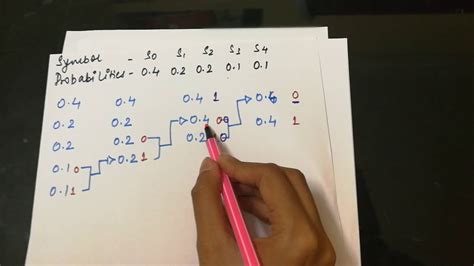 Symbol - S0 S1 S2 S3 S4
Probabilities - 0.4 0.2 0.2 0.1 0.1
0.4 0.4 0.4 1 0.6 0
0.2 0.2 0.4 0 0.4 1
0.2 0.2 0 0.2 0
0.1 0 0.2 1
0.1 1